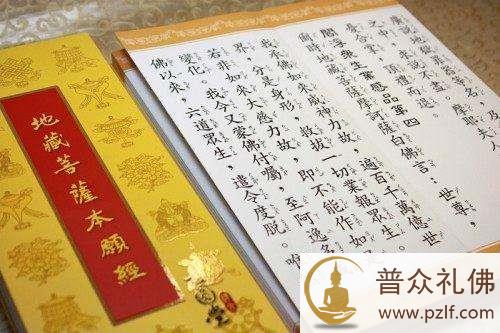 地藏菩薩本願經
頂禮而退。
閻浮眾生業感品第四
爾時地藏菩薩摩訶薩白佛言：世尊，
我承佛如來威神力故，遍百千萬億世
界，分是身形，救拔一切業報眾生。
若非如來大慈力故，即不能作如
變化。我今又蒙佛付囑，至阿逸多
佛以來，六道眾生，遣令度脫。唯
普众礼佛
www.pzlf.com